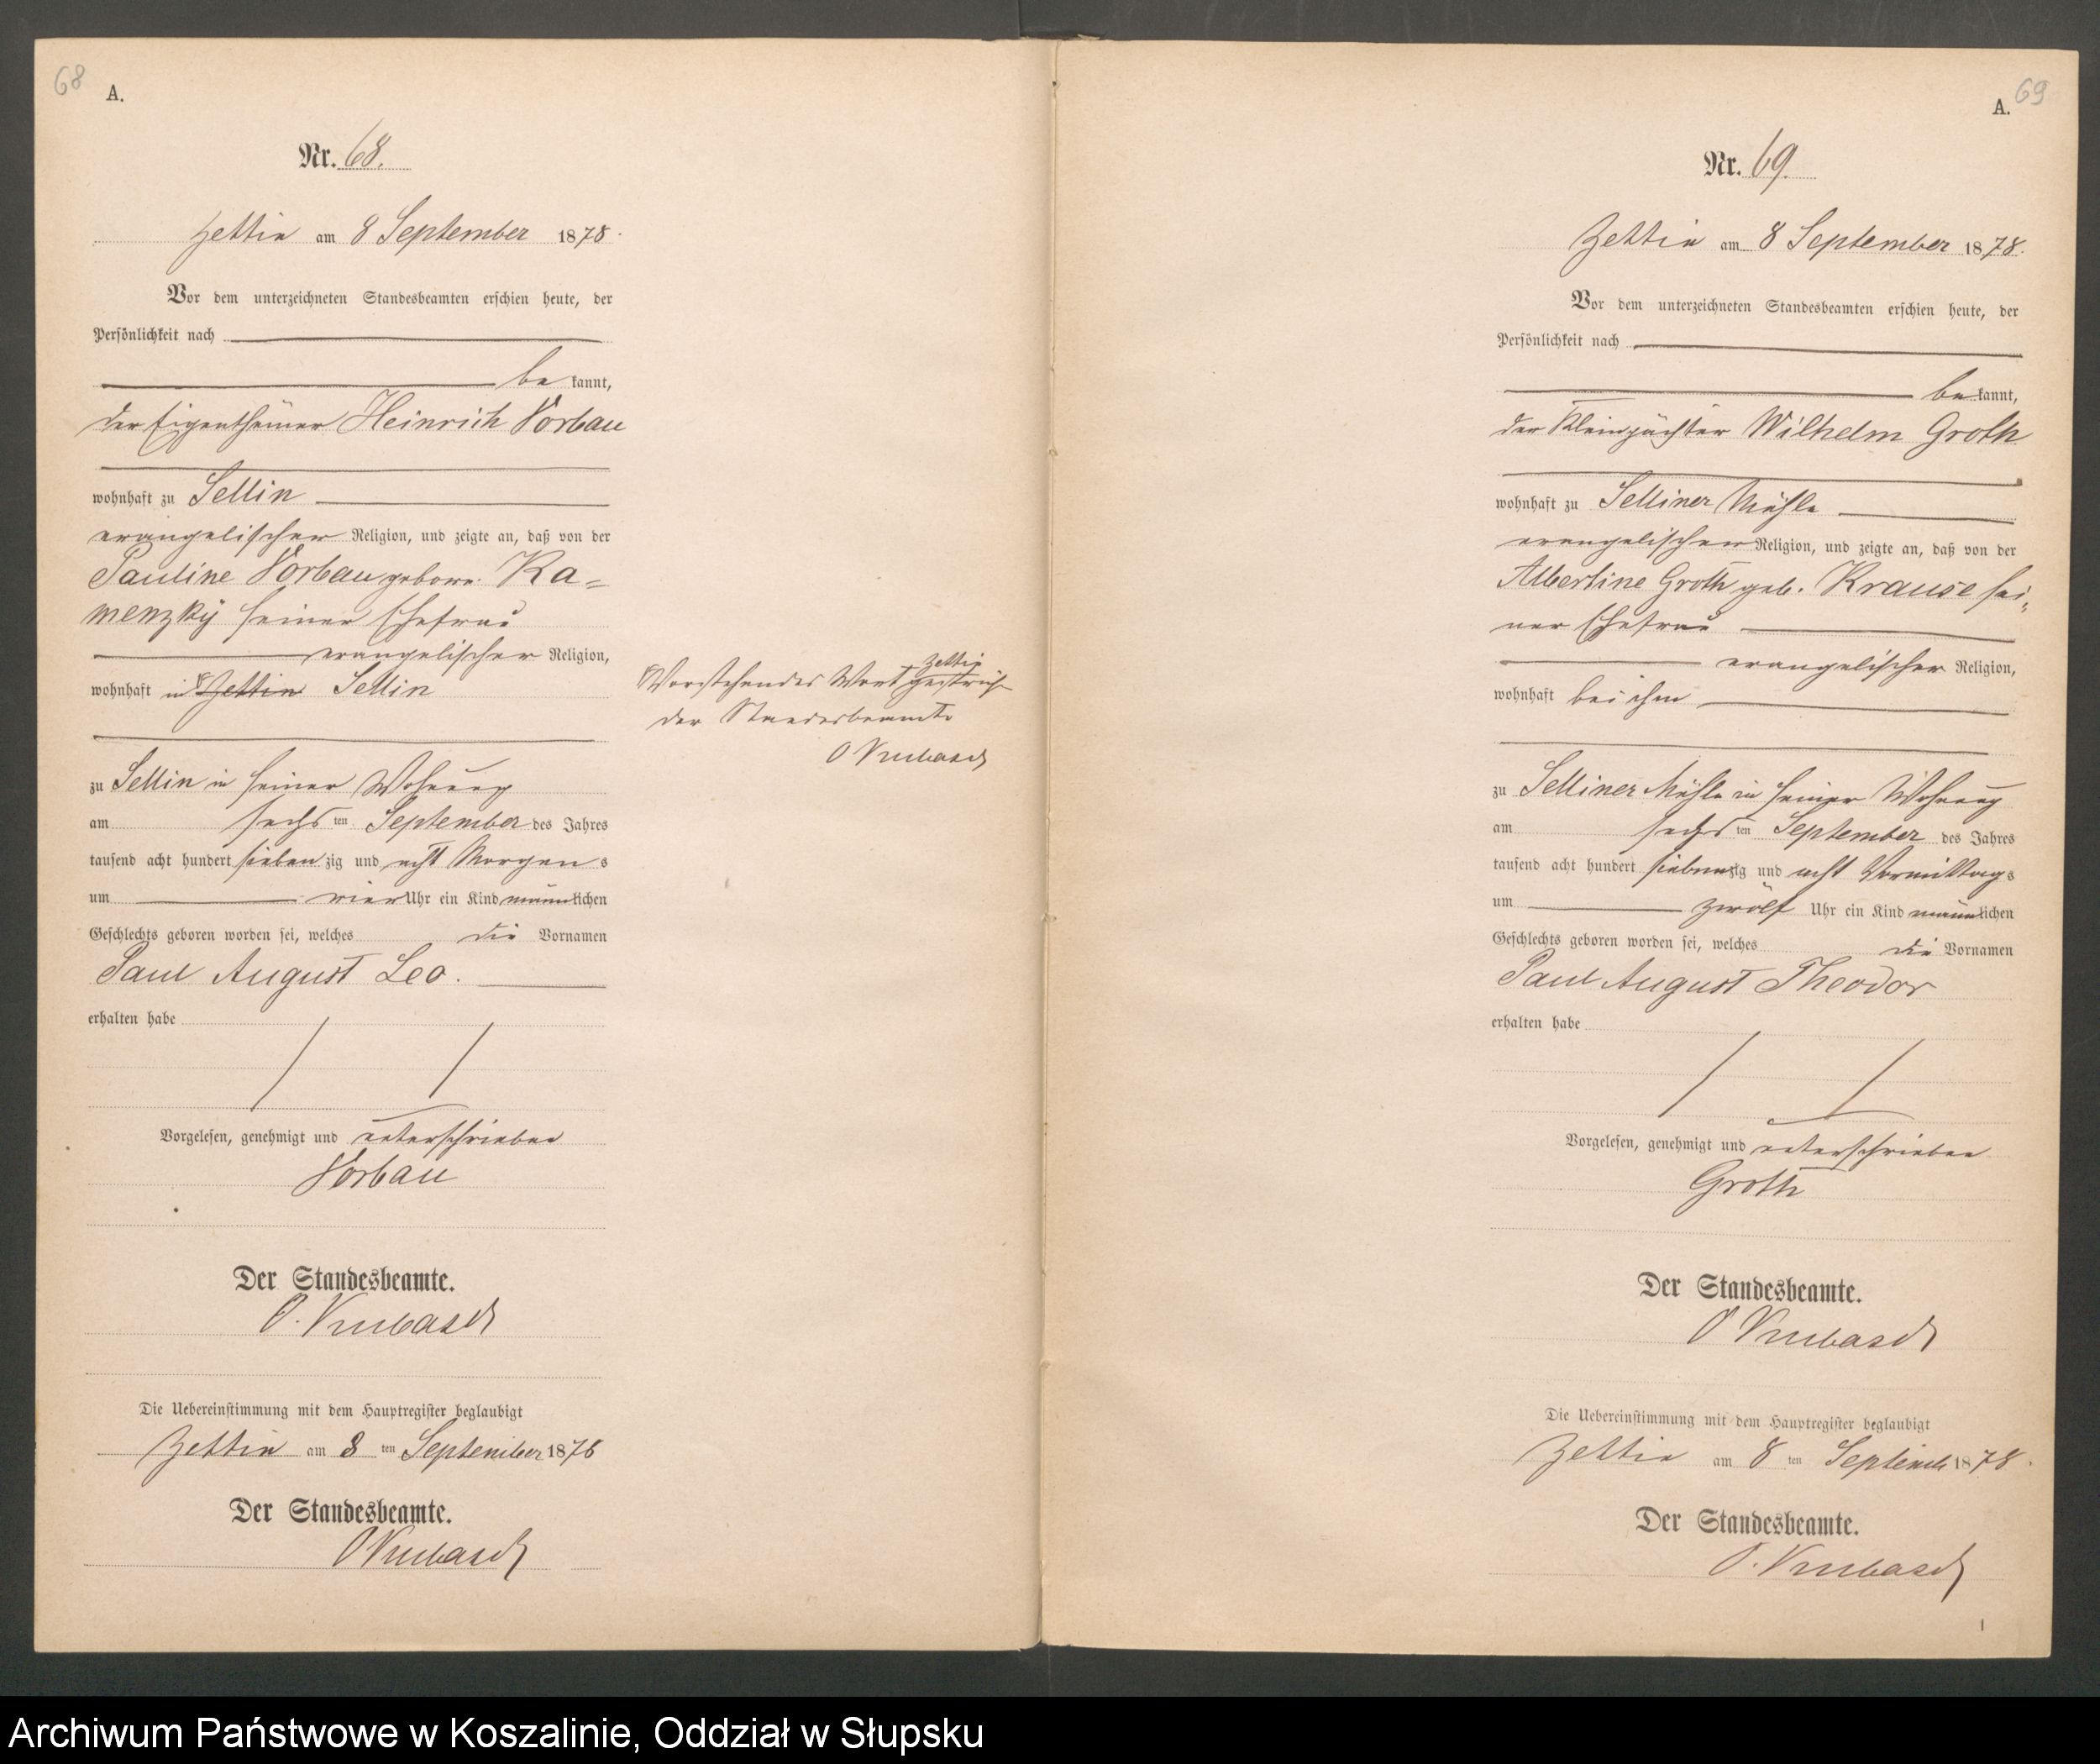 68
A.
Nr. 68.
Zettin am 8 September 1878.
Vor dem unterzeichneten Standesbeamten erschien heute, der
Persönlichkeit nach
be kannt,
der Eigenthümer Heinrich Vorbau
wohnhaft zu Sellin
evangelischer Religion, und zeigte an, daß von der
Pauline Vorbau geborne Ka-
menzky seiner Ehefrau
evangelischer Religion,
wohnhaft in Zettin Sellin
zu Sellin in seiner Wohnung
am sechs ten September des Jahres
tausend acht hundert sieben zig und acht Morgen s
um vier Uhr ein Kind männlichen
Geschlechts geboren worden sei, welches die Vornamen
Paul August Leo.
erhalten habe
Vorgelesen, genehmigt und unterschrieben
Vorbau
Der Standesbeamte.
Die Uebereinstimmung mit dem Hauptregister beglaubigt
Zettin am 8 ten September 1878
Der Standesbeamte.
Zettin
Vorstehendes Wort gestrich
der Standesbeamte
A. 69
Nr. 69.
Zettin am 8 September 1878.
Vor dem unterzeichneten Standesbeamten erschien heute, der
Persönlichkeit nach
be kannt,
der Kleinpächter Wilhelm Groth
wohnhaft zu Selliner Mühle
evangelischer Religion, und zeigte an, daß von der
Albertine Groth geb. Krause sei-
ner Ehefrau
evangelischer Religion,
wohnhaft bei ihm
zu Selliner Mühle in seiner Wohnung
am sechs ten September des Jahres
tausend acht hundert siebenzig und acht Vormittags
um zwölf Uhr ein Kind männlichen
Geschlechts geboren worden sei, welches die Vornamen
Paul August Theodor
erhalten habe
Vorgelesen, genehmigt und unterschrieben
Groth
Der Standesbeamte.
Die Uebereinstimmung mit dem Hauptregister beglaubigt
Zettin am 8 ten Septemb 1878.
Der Standesbeamte.
Archiwum Państwowe w Koszalinie, Oddział w Słupsku